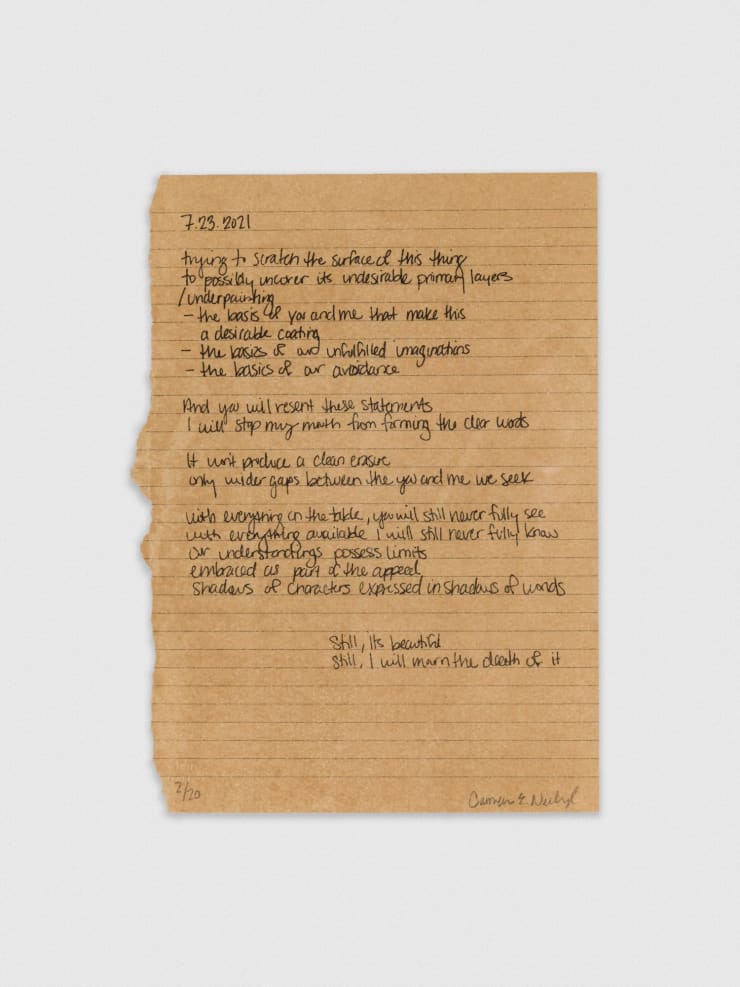 7.23.2021
trying to scratch the surface of this thing
to possibly uncover its undesirable primary layers
/underpainting
- the basis of you and me that make this
a desirable coating
- the basics of our unfulfilled imaginations
- the basics of our avoidance
And you will resent these statements
I will stop my mouth from forming the clear words
It won't produce a clean erasure
only wider gaps between the you and me we seek
with everything on the table, you will still never fully see
with everything available I will still never fully know
our understandings possess limits
embraced as part of the appeal
shadows of characters expressed in shadows of words
Still, its beautiful
Still, I will mourn the death of it
2/20